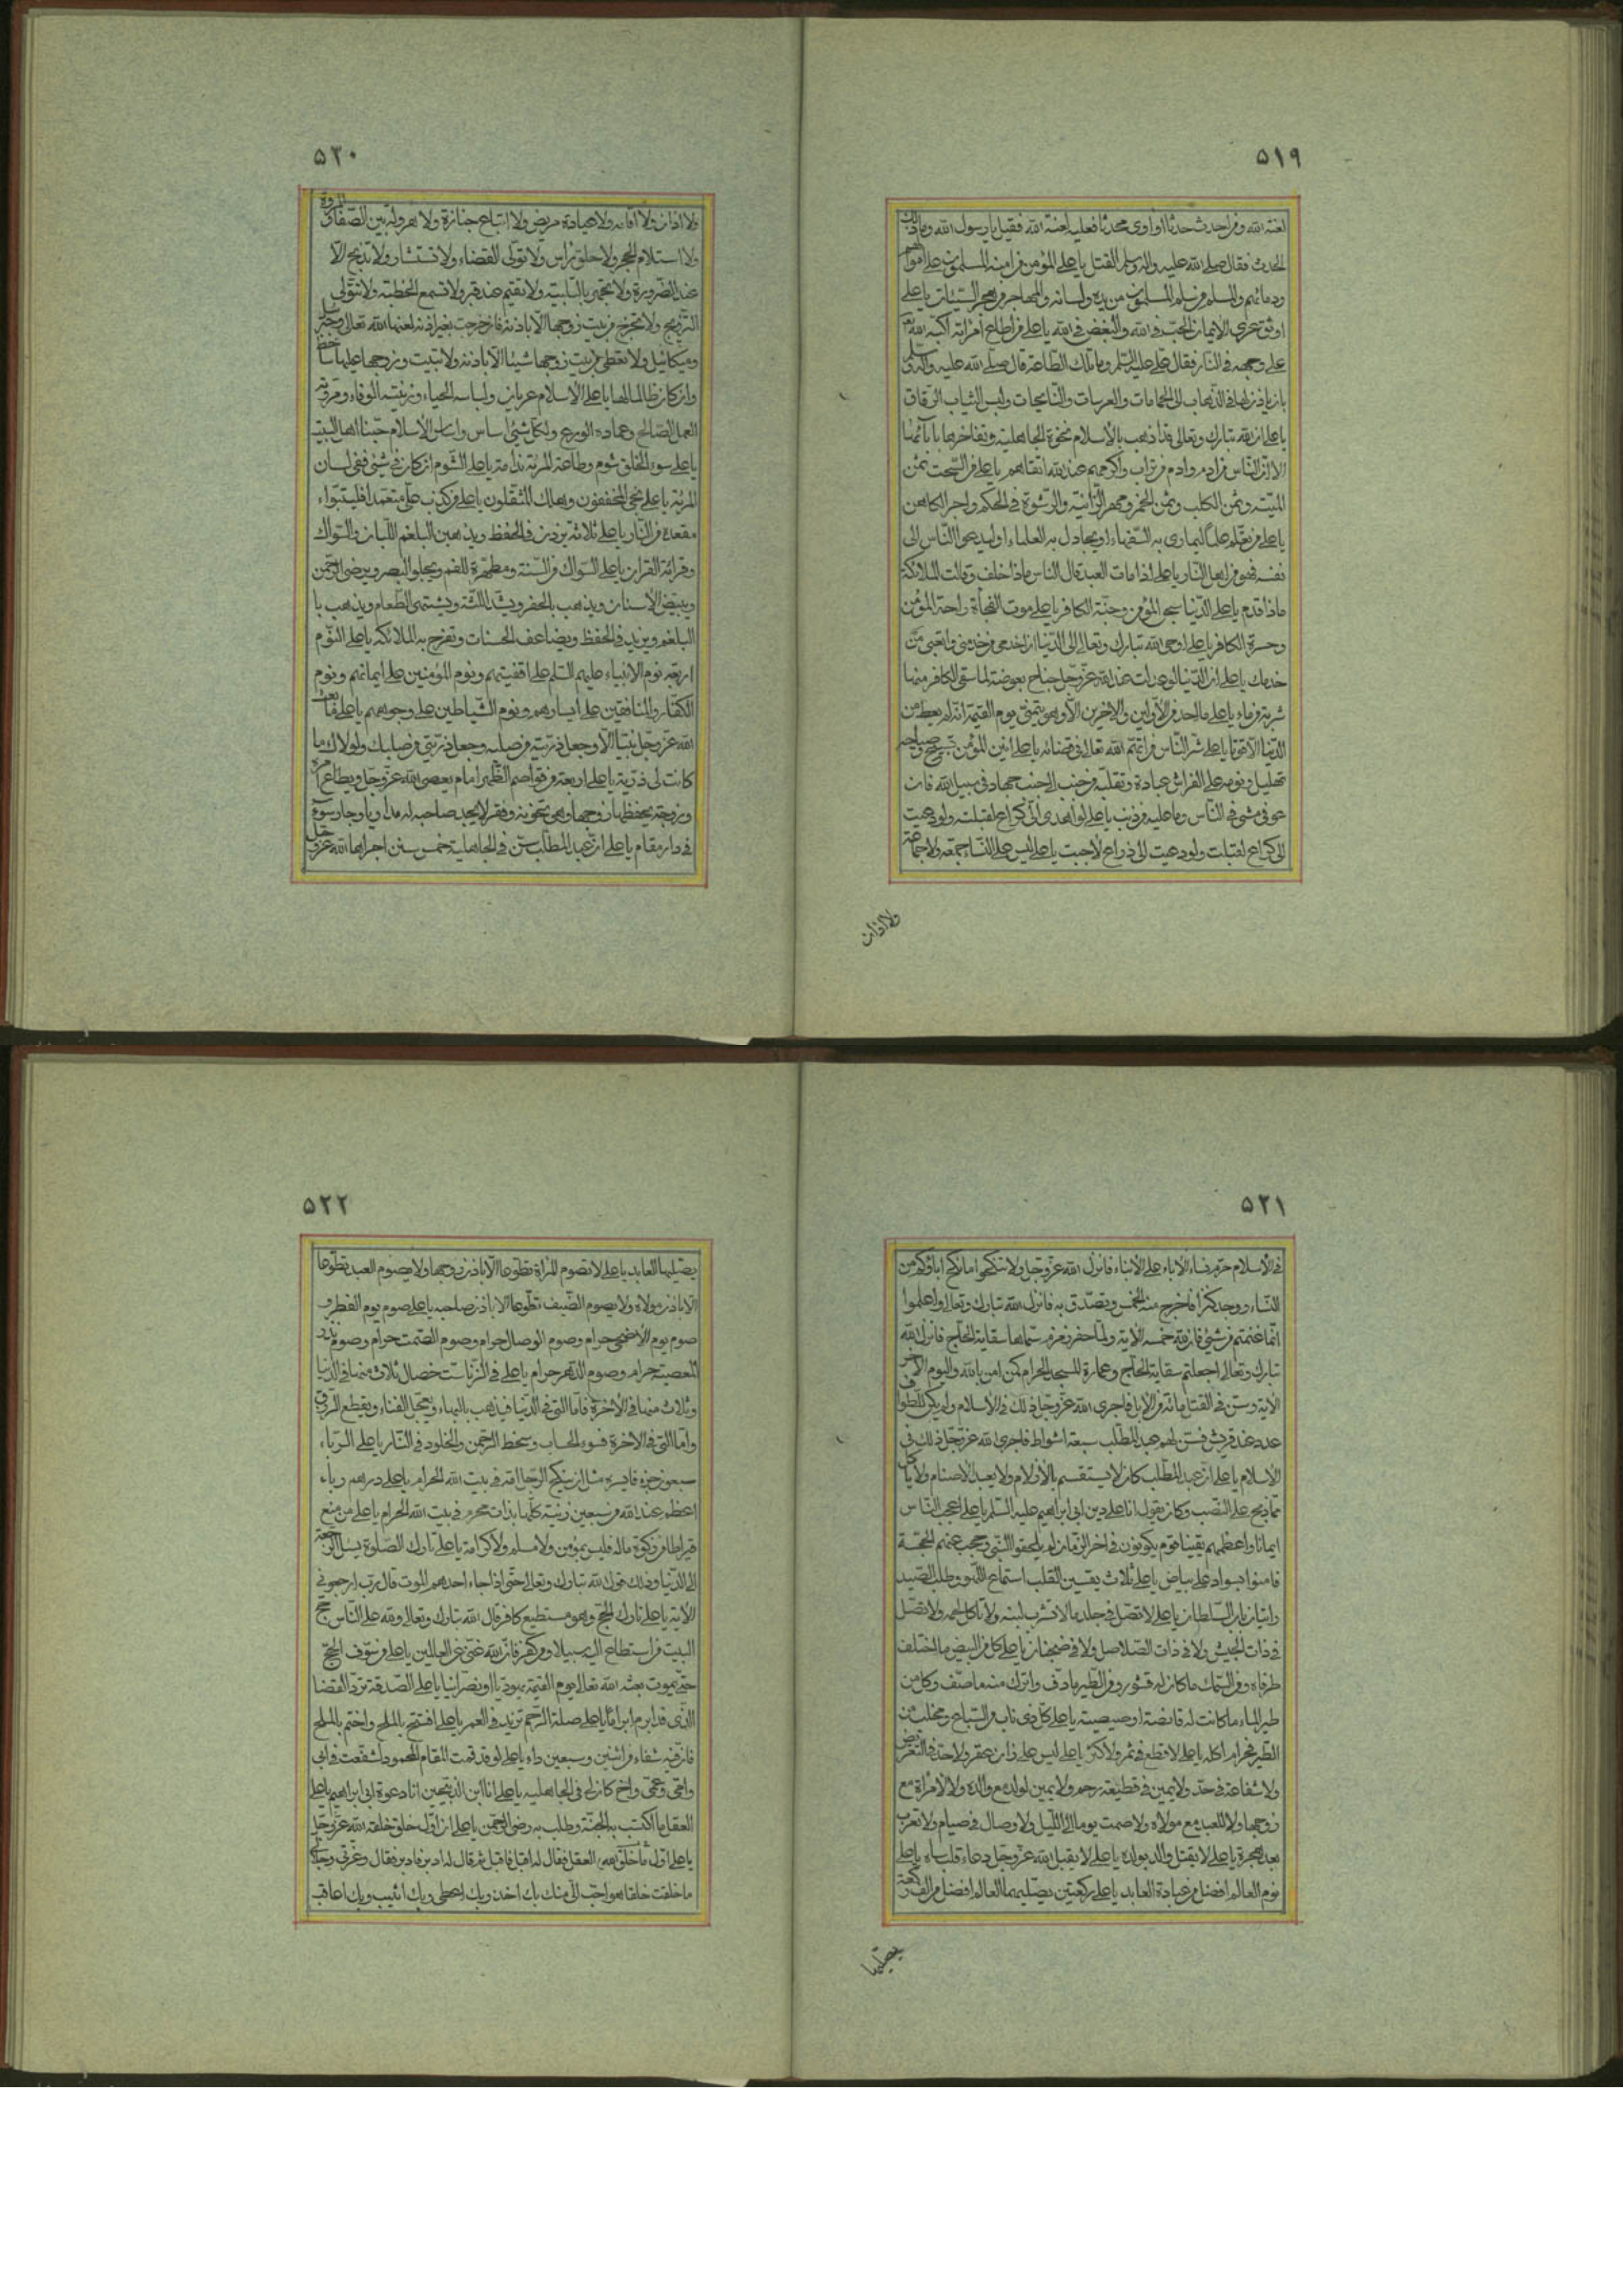 ٥١٩
لعنة الله ومن احدث حدثا او اوى محدثا فعليه لعنة الله فقيل يا رسول الله وما ذلك
الحدث فقال صلى الله عليه واله وسلم القتل يا على المؤمن من امنه المسلمون على اموالهم
ودمائهم والمسلم من سلم المسلمون من يده ولسانه والمهاجر من هجر السيئات يا على
اوثق عرى الايمان الحب فى الله والبغض فى الله يا على من اطاع امرأته اكبه الله
على وجهه فى النار فقال على عليه السلم وما تلك الطاعة قال صلى الله عليه واله وسلم
يأذن لها فى الذهاب الى الحمامات والعرسات والنايحات ولبس الثياب الرقاق
يا على ان الله تبارك وتعالى قد اذهب بالاسلام نخوة الجاهلية وتفاخرها بآبائها
الا ان الناس من ادم وادم من تراب واكرمهم عند الله اتقاهم يا على من السحت ثمن
الميتة وثمن الكلب وثمن الخمر ومهر الزانية والرشوة فى الحكم واجر الكاهن
يا على من تعلم علما ليمارى به السفهاء او يجادل به العلماء او ليدعو الناس الى
نفسه فهو من اهل النار يا على اذا مات العبد قال الناس ماذا خلف وقالت الملائكة
ماذا قدم يا على الدنيا سجن المؤمن وجنة الكافر يا على موت الفجأة راحة المؤمن
وحسرة الكافر يا على اوحى الله تبارك وتعالى الى الدنيا اخدمى من خدمنى واتعبى من
خدمك يا على ان الدنيا لو عدلت عند الله عز وجل جناح بعوضة لما سقى الكافر منها
شربة من ماء يا على ما احد من الاولين والاخرين الا وهو يتمنى يوم القيمة انه لم يعط من
الدنيا الا قوتا يا على شر الناس من اتهم الله تعالى فى قضائه يا على انين المؤمن تسبيح وصياحه
تهليل ونومه على الفراش عبادة وتقلبه من جنب الى جنب جهاد فى سبيل الله فان
عوفى مشى فى الناس وما عليه من ذنب يا على لو اهدى الى كراع لقبلت ولو دعيت
الى كراع لقبلت ولو دعيت الى ذراع لاجبت يا على ليس على النساء جمعة ولا جماعة
ولا اذان
٥٢٠
ولا اذان ولا اقامة ولا عيادة مريض ولا اتباع جنازة ولا هرولة بين الصفا والمروة
ولا استلام الحجر ولا حلق راس ولا تولى القضاء ولا تستشار ولا تذبح الا
عند الضرورة ولا تجهر بالتلبية ولا تقيم عند قبر ولا تسمع الخطبة ولا تتولى
التزويج ولا تخرج من بيت زوجها الا باذنه فان خرجت بغير اذنه لعنها الله تعالى وجبرئيل
وميكائيل ولا تعطى من بيت زوجها شيئا الا باذنه ولا تبيت وزوجها عليها ساخط
وان كان ظالما لها يا على الاسلام عريان ولباسه الحياء وزينته الوفاء ومروته
العمل الصالح وعماده الورع ولكل شئ اساس واساس الاسلام حبنا اهل البيت
يا على سوء الخلق شوم وطاعة المرئة ندامة يا على الشوم ان كان فى شئ ففى لسان
المرئة يا على نجى المخففون وهلك المثقلون يا على من كذب على متعمدا فليتبواء
مقعده من النار يا على ثلاثة يزدن فى الحفظ ويذهبن البلغم اللبان والسواك
وقرائة القران يا على السواك من السنة ومطهرة للفم ويجلو البصر ويرضى الرحمن
ويبيض الاسنان ويذهب بالحفر ويشد اللثة ويشتهى الطعام ويذهب با
البلغم ويزيد فى الحفظ ويضاعف الحسنات وتفرح به الملائكة يا على النوم
اربعة نوم الانبياء عليهم السلم على اقفيتهم ونوم المؤمنين على ايمانهم ونوم
الكفار والمنافقين على ايسارهم ونوم الشياطين على وجوههم يا على ما بعث
الله عز وجل نبيا الا وجعل ذريته من صلبه وجعل ذريتى من صلبك ولولاك ما
كانت لى ذرية يا على اربعة من قواصم الظهر امام يعصى الله عز وجل ويطاع امره
وزوجة يحفظها زوجها وهى تخونه وفقر لا يجد صاحبه له مداويا وجار سوء
فى دار مقام يا على ان عبد المطلب سن فى الجاهلية خمس سنن اجراها الله عز وجل
٥٢١
فى الاسلام حرم نساء الاباء على الابناء فانزل الله عز وجل ولا تنكحوا ما نكح اباؤكم من
النساء ووجد كنزا فاخرج منه الخمس وتصدق به فانزل الله تبارك وتعالى واعلموا
انما غنمتم من شئ فان لله خمسه الاية ولما حفر زمزم سماها سقاية الحاج فانزل الله
تبارك وتعالى اجعلتم سقاية الحاج وعمارة المسجد الحرام كمن امن بالله واليوم الاخر
الاية وسن فى القتل مائة من الابل فاجرى الله عز وجل ذلك فى الاسلام ولم يكن للطواف
عدد عند قريش فسن لهم عبد المطلب سبعة اشواط فاجرى الله عز وجل ذلك فى
الاسلام يا على ان عبد المطلب كان لا يستقسم بالازلام ولا يعبد الاصنام ولا ياكل
ما ذبح على النصب وكان يقول انا على دين ابى ابراهيم عليه السلم يا على اعجب الناس
ايمانا واعظمهم يقينا قوم يكونون فى اخر الزمان لم يلحقوا النبى وحجب عنهم الحجة
فامنوا بسواد على بياض يا على ثلاث يقسين القلب استماع اللهو وطلب الصيد
واتيان باب السلطان يا على لا تصل فى جلد ما لا تشرب لبنه ولا تاكل لحمه ولا تصل
فى ذات الجيش ولا فى ذات الصلاصل ولا فى ضجنان يا على كل من البيض ما اختلف
طرفاه ومن السمك ما كان له قشور ومن الطير ما دف واترك منه ما صف وكل من
طير الماء ما كانت له قانصة او صيصية يا على كل ذى ناب من السباع ومخلب من
الطير فحرام اكله يا على لا قطع فى ثمر ولا كثر يا على ليس على زان عقر ولا حد فى التعريض
ولا شفاعة فى حد ولا يمين فى قطيعة رحم ولا يمين لولد مع والده ولا لامراة مع
زوجها ولا للعبد مع مولاه ولا صمت يوما الى الليل ولا وصال فى صيام ولا تعرب
بعد هجرة يا على لا يقتل والد بولده يا على لا يقبل الله عز وجل دعاء قلب ساه يا على
نوم العالم افضل من عبادة العابد يا على ركعتين يصليهما العالم افضل من الف ركعة
يصليها
٥٢٢
يصليها العابد يا على لا تصوم المراة تطوعا الا باذن زوجها ولا يصوم العبد تطوعا
الا باذن مولاه ولا يصوم الضيف تطوعا الا باذن صاحبه يا على صوم يوم الفطر و
صوم يوم الاضحى حرام وصوم الوصال حرام وصوم الصمت حرام وصوم نذر
المعصية حرام وصوم الدهر حرام يا على فى الزنا ست خصال ثلاث منها فى الدنيا
وثلاث منها فى الاخرة فاما التى فى الدنيا فيذهب بالبهاء ويعجل الفناء ويقطع الرزق
واما التى فى الاخرة فسوء الحساب وسخط الرحمن والخلود فى النار يا على الرباء
سبعون جزء فايسره مثل ان ينكح الرجل امه فى بيت الله الحرام يا على درهم رباء
اعظم عند الله من سبعين زنية كلها بذات محرم فى بيت الله الحرام يا على من منع
قيراطا من زكوة ماله فليس بمؤمن ولا مسلم ولا كرامة يا على تارك الصلوة يسئل الرجعة
الى الدنيا وذلك قول الله تبارك وتعالى حتى اذا جاء احدهم الموت قال رب ارجعونى
الاية يا على تارك الحج وهو مستطيع كافر قال الله تبارك وتعالى ولله على الناس حج
البيت من استطاع اليه سبيلا ومن كفر فان الله غنى عن العالمين يا على من سوف الحج
حتى يموت بعثه الله تعالى يوم القيمة يهوديا او نصرانيا يا على الصدقة ترد القضا
الذى قد ابرم ابراما يا على صلة الرحم تزيد فى العمر يا على افتتح بالملح واختم بالملح
فان فيه شفاء من اثنين وسبعين داء يا على لو قد قمت المقام المحمود لشفعت فى ابى
وامى وعمى واخ كان لى فى الجاهلية يا على انا ابن الذبيحين انا دعوة ابى ابراهيم يا على
العقل ما اكتسب به الجنة وطلب به رضى الرحمن يا على ان اول خلق خلقه الله عز وجل
العقل فقال له اقبل فاقبل ثم قال له ادبر فادبر فقال وعزتى وجلالى
ما خلقت خلقا هو احب الى منك بك اخذ وبك اعطى وبك اثيب وبك اعاقب